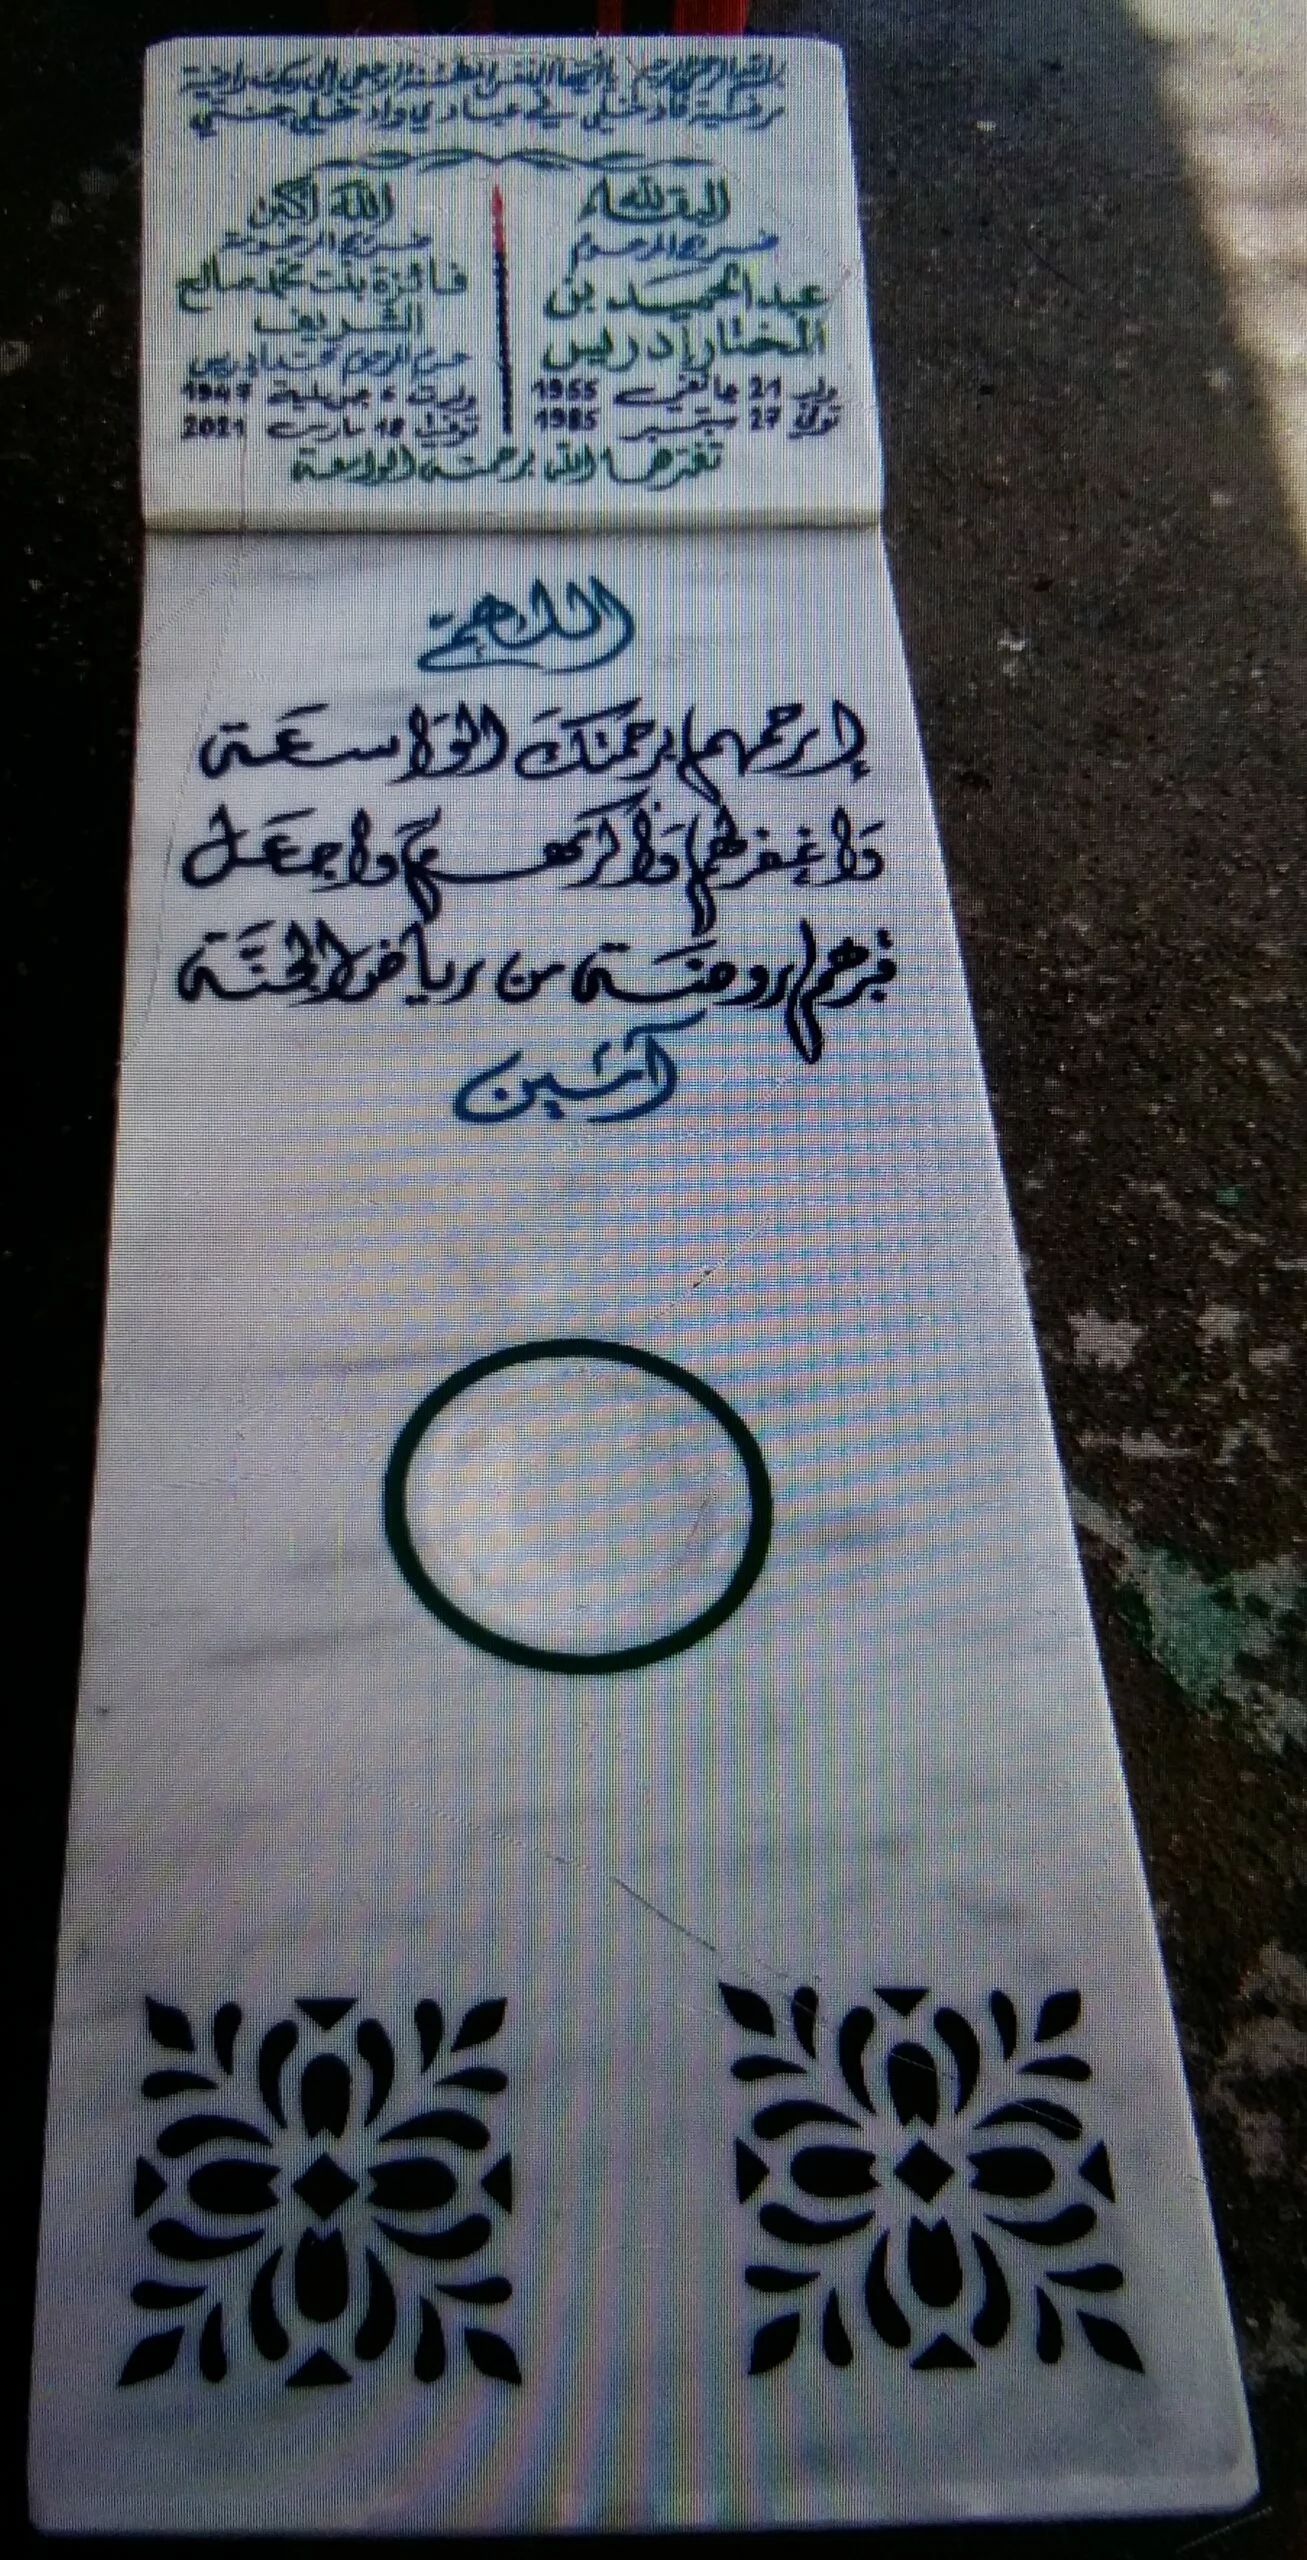 بسم الله الرحمن الرحيم يا أيتها النفس المطمئنة ارجعي إلى ربك راضية
مرضية فادخلي في عبادي وادخلي جنتي
البقاء لله
ضريح المرحوم
عبد الحميد بن
المختار إدريس
ولد 21 جانفي 1955
توفي 27 سبتمبر 1985
الله أكبر
ضريح المرحومة
فائزة بنت محمد صالح
الشريف
حرم المرحوم محمد إدريس
ولدت 6 جويلية 1947
توفيت 18 مارس 2021
تغمدهما الله برحمته الواسعة
اللهم
إرحمهما برحمتك الواسعة
واغفر لهما وأكرمهما واجعل
قبرهما روضة من رياض الجنة
آمين